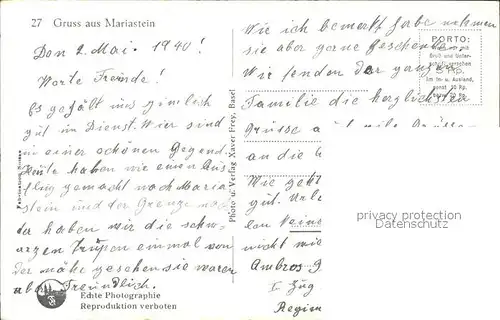 27 Gruss aus Mariastein
Don 2. Mai. 1940!
Worte Freinde!
Es gefält uns zimlich
gut im Dienst. Wier sind
in einer schönen Gegend.
Heute haben wie einen Aus
flug gemacht nach Maria
stein und der Grenze nach
der haben wir die schw
arzen Trupen einmal von
der nähe geschen sie waren
aber Freundlich.
Echte Photographie
Reproduktion verboten
Photo u. Verlag Xaver Frey, Basel
Wie ich bemerkt habe nehmen
sie aber gerne geschenke
Wir senden der ganzen
Familie die herzlichsten
Grüsse
an die
Wie geht
gut.
nicht
Ambros
I. Zug
Regim
PORTO:
5 Rp.
im In- u. Ausland,
sonst 10 Rp.
privacy protection
DatenSchutz